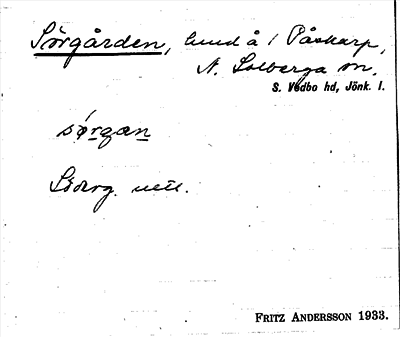 Sörgården, hmd å 1 Påskarp,
N. Solberga sn.
S. Vedbo hd, Jönk. l.
sörgan
FRITZ ANDERSSON 1933.